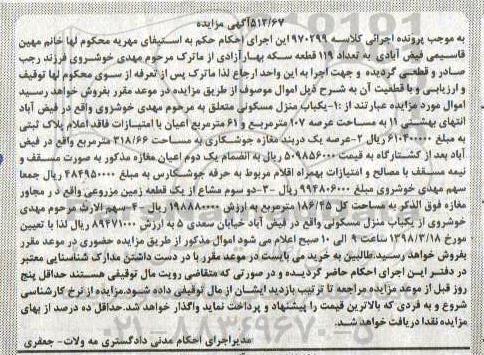 ۵۱۳/۶۷آگهی مزایده
به موجب پرونده اجرائی کلاسه ۹۷۰۲۹۹ این اجرای احکام حکم به استیفای مهریه محکوم لها خانم مهین
قاسیمی فیض آبادی به تعداد ۱۱۹ قطعه سکه بهار آزادی از ماترک مرحوم مهدی خوشروی فرزند رجب
صادر و قطعی گردیده و جهت اجرا به این واحد ارجاع لذا ماترک پس از تعرفه از سوی محکوم لها توقیف
و ارزیابی و با قطعیت آن به شرح ذیل اموال موصوف از طریق مزایده در موعد مقرر بفروش خواهد رسید
اموال مورد مزایده عبارتند از :۱-یکباب منزل مسکونی متعلق به مرحوم مهدی خوشروی واقع در فیض آباد
انتهای بهشتی ۱۱ به مساحت عرصه ۱۰۷ مترمربع و ۶۱ مترمربع اعیان با امتیازات فاقد اعلام پلاک ثبتی
به مبلغ ۶۱۰۴۰۰۰۰۰ ریال ۲-عرصه یک دربند مغازه جوشکاری به مساحت ۳۱۸/۶۶ مترمربع واقع در فیض
آباد بعد از کشتارگاه به قیمت ۵۰۹۸۵۶۰۰۰ ریال به انضمام یک دوم اعیان مغازه مذکور به صورت مسقف و
نیمه مسقف با مصالح و امتیازات بهمراه اقلام مربوط به حرفه جوشکارس به مبلغ ۴۸۴۹۵۰۰۰۰ ریال جمعا
سهم مهدی خوشروی مبلغ ۹۹۴۸۰۶۰۰۰ ریال -۳-دو سهم مشاع از یک قطعه زمین مزروعی واقع در مجاور
مغازه فوق الذکر به مساحت کل ۱۸۶/۴۵ مترمربع به ارزش ۱۹۸۸۸۰۰۰۰ ریال -۴-سهم الارث مرحوم مهدی
خوشروی از یکباب منزل مسکونی واقع در فیض آباد خیابان سعدی ۵ به ارزش ۸۹۴۷۱۰۰۰ ریال لذا با تعیین
مورخ ۱۳۹۸/۳/۱۸ ساعت ۹ الی ۱۰ صبح اعلام می شود اموال مذکور از طریق مزایده حضوری در موعد مقرر
بفروش خواهد رسید.طالبین به خرید می بایست در موعد مقرر با در دست داشتن مدارک شناسنایی معتبر
در دفتر این اجرای احکام حاضر گردیده و در صورتی که متقاضی رویت مال توقیفی هستند حداقل پنج
روز قبل از موعد مزایده مراجعه تا ترتیب بازدید ایشان از مال توقیفی داده شود.مزایده از نرخ کارشناسی
شروع و به فردی که بالاترین قیمت را پیشنهاد و پرداخت نماید واگذار خواهد شد.حداقل ده درصد از بهای
مزایده نقدا دریافت خواهد شد.
مدیراجرای احکام مدنی دادگستری مه ولات- جعفری
۰۲۱-۸۸۳۴۹۶۷۰-۵